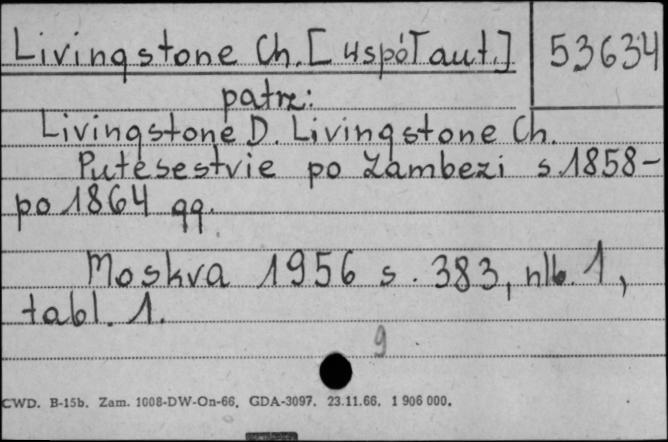 Livingstone Ch. [współaut.] 53634
patrz:
Livingstone D. Livingstone Ch.
Putešestvie po Zambezi s 1858-
po 1864 gg.
Moskva 1956 s. 383, nlb. 1,
tabl. 1.
9
CWD. B-15b. Zam. 1008-DW-On-66. GDA-3097. 23.11.66. 1 906 000.